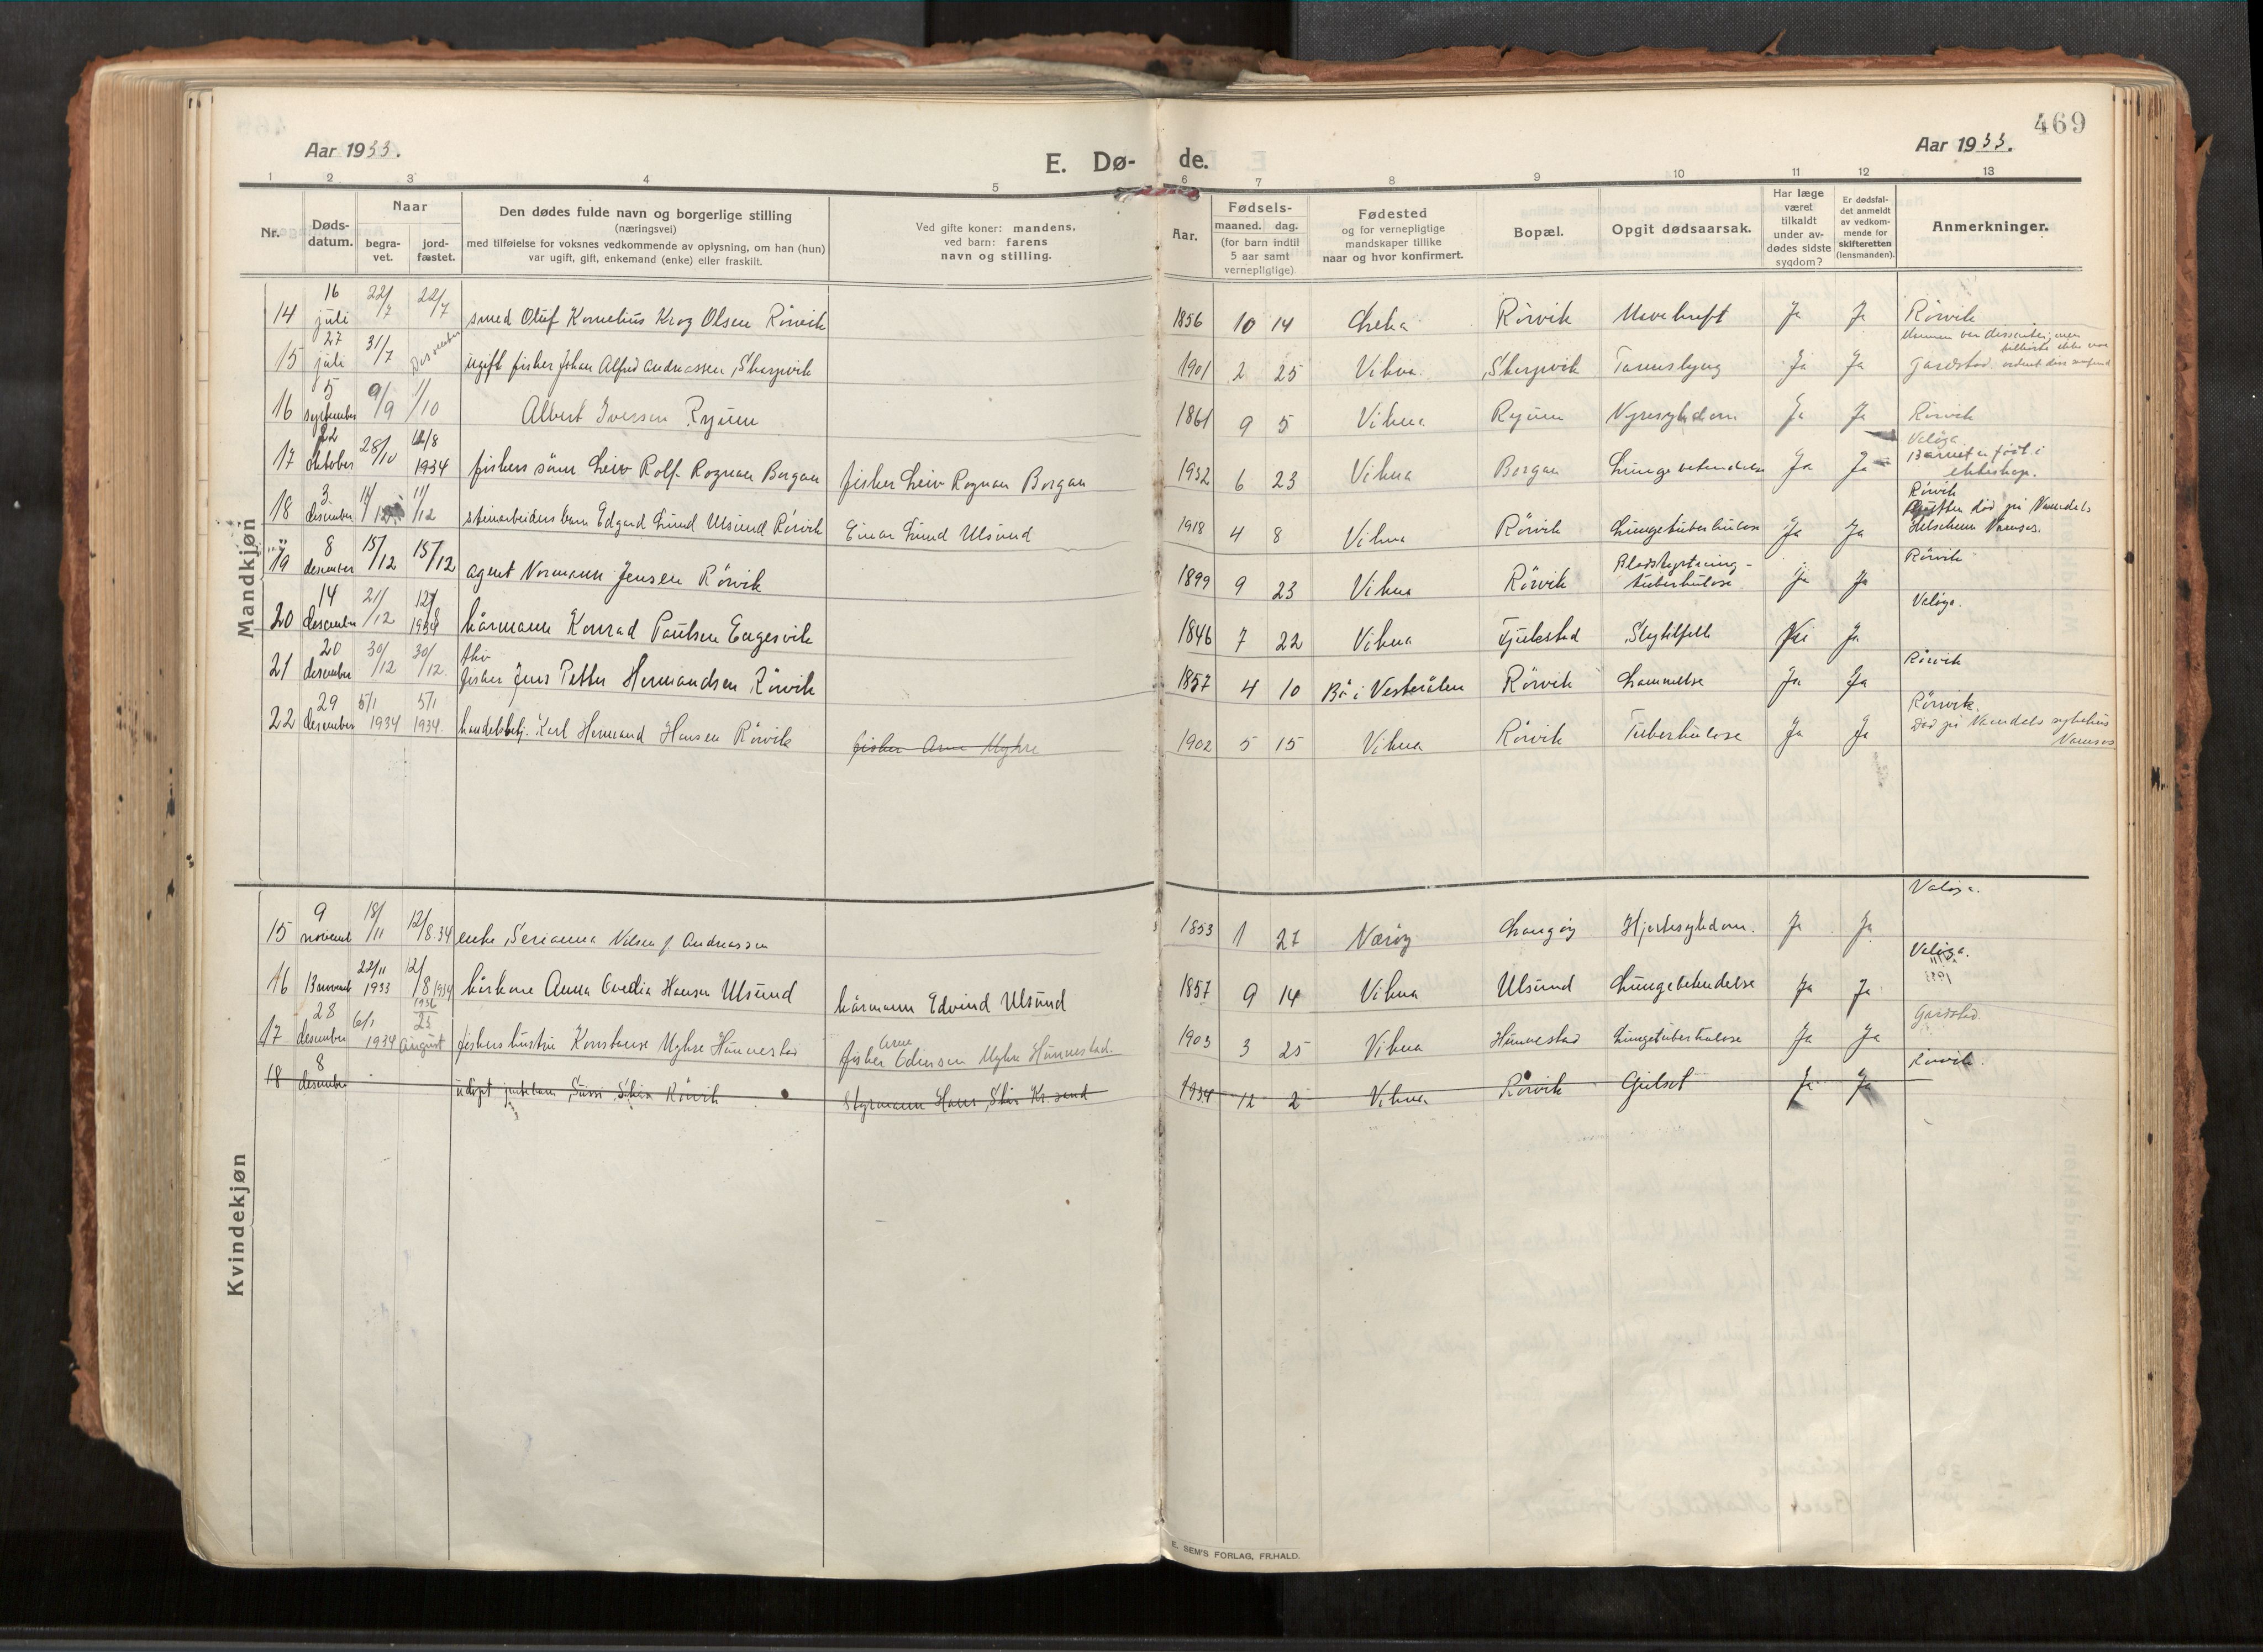 469
Aar 1933.
E. Dø-
de.
Aar 1933.
1 2 3 4 5 6 7 8 9 10 11 12 13
Nr.
Døds-
datum.
Naar
begra-
vet.
jord-
fæstet.
Den dødes fulde navn og borgerlige stilling
(næringsvei)
med tilføielse for voksnes vedkommende av oplysning, om han (hun)
var ugift, gift, enkemand (enke) eller fraskilt.
Ved gifte koner: mandens,
ved barn: farens
navn og stilling.
Aar.
Fødsels-
maaned. dag.
(for barn indtil
5 aar samt
vernepligtige)
Fødested
og for vernepligtige
mandskaper tillike
naar og hvor konfirmert.
Bopæl.
Opgit dødsaarsak.
Har læge
været
tilkaldt
under av-
dødes sidste
sygdom?
Er dødsfal-
det anmeldt
av vedkom-
mende for
skifteretten
(lensmanden).
Anmerkninger.
Mandkjøn
14 16 juli 22/7 22/7 smed Oluf Kornelius Krog Olsen Rörvik 1856 10 14 Leka Rörvik Mavekreft Ja Ja Rörvik
15 27 juli 31/7 ugift fisker Johan Alfred Andreassen, Skarpvik 1901 2 25 Vikna Skarpvik Ja Ja Gardstad
16 5 september 9/9 1/10 Albert Iversen Ryum 1861 9 5 Vikna Ryum Nyresykdom Ja Ja Rörvik
17 22 oktober 28/10 12/8 1934 fiskers sönn Leiv Rolf Rognan Borgan fisker Leiv Rognan Borgan 1932 6 23 Vikna Borgan Lungebetendelse Ja Ja Valöya. Barnet er födt i ekteskap.
18 3. desember 11/12 11/12 steinarbeiders barn Edgard Lund Ulsund Rörvik Einar Lund Ulsund 1918 4 8 Vikna Rörvik Lungetuberkulose Ja Ja Rörvik död på Namdals Namsos.
19 8 desember 15/12 15/12 agent Normann Jensen Rörvik 1899 9 23 Vikna Rörvik Blodstyrtning - tuberkulose Ja Ja Rörvik
20 14 desember 21/12 12/8 1934 kårmann Konrad Paulsen Engesvik 1846 7 22 Vikna Slagtilfelle Nei Ja Valöya.
21 20 desember 30/12 30/12. fhv fisker Jens Petter Hermandsen Rörvik 1857 4 10 Bö i Vesterålen Rörvik Lammelse Ja Ja Rörvik
22 29 desember 5/1 1934 5/1 1934. handelsbetj. Karl Hermand Hansen Rörvik fisker Arne Myhre 1902 5 15 Vikna Rörvik Tuberkulose Ja Ja Rörvik. Död på Namdals sykehus Namsos
Kvindekjøn
15 9 novemb 18/11 12/8.34 enke Serianna Nilsen f. Andreassen 1853 1 27 Næröy Langöy Hjertesykdom. Ja Ja Valöya.
16 13 novemb 22/11 1933 12/8 1934 kårkone Anna Ovedia Hansen Ulsund kårmann Edvind Ulsund 1857 9 14 Vikna Ulsund Lungebetendelse Ja Ja Valöya.
17 28 desember 6/1 1934 1936 23 August fiskers hustru Konstanse Myhre Hunnestad fisker Arne Edinsen Myhre Hunnestad. 1903 3 25 Vikna Hunnestad Lungetuberkulose Ja Ja Gardstad.
18 8 desember udöpt pikebarn, Sussi Skis Rörvik Styrmann Hans Skis Kr. sund 1934 12 2 Vikna Rörvik Gulsot Ja Ja Rörvik.
E. SEM'S FORLAG, FR.HALD.